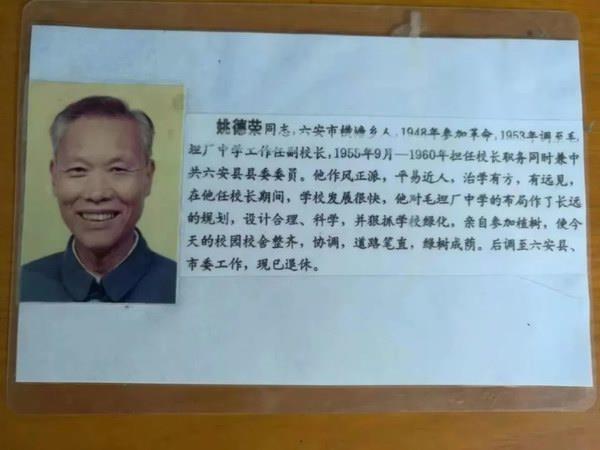 姚德荣同志，六安市横塘乡人，1948年参加革命，1953年调至毛
坦厂中学工作任副校长，1955年9月—1960年担任校长职务同时兼中
共六安县县委委员。他作风正派，平易近人，治学有方，有远见，
在他任校长期间，学校发展很快，他对毛坦厂中学的布局作了长远
的规划，设计合理、科学，并狠抓学校绿化，亲自参加植树，使今
天的校园校舍整齐，协调，道路笔直，绿树成荫。后调至六安县、
市委工作，现已退休。